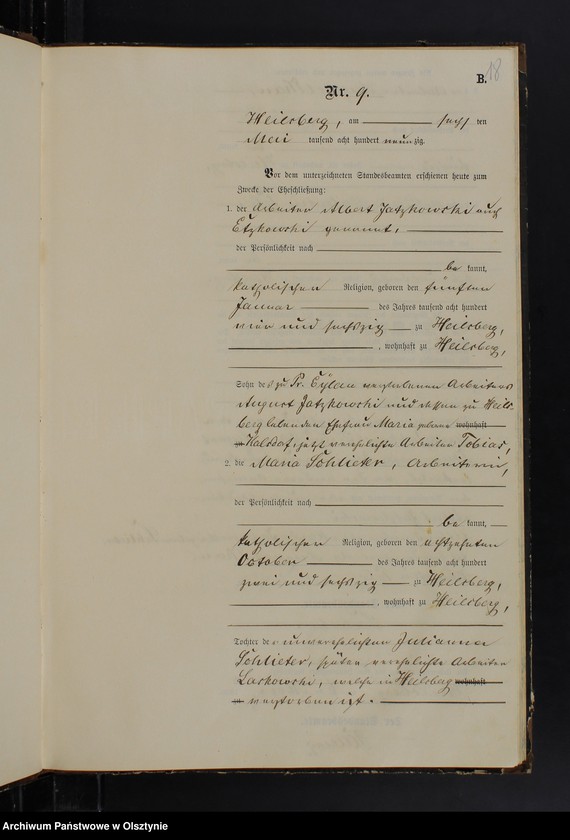 B. 18
Nr. 9.
Heilsberg, am sechs ten
Mai tausend acht hundert neunzig.
Vor dem unterzeichneten Standesbeamten erschienen heute zum
Zwecke der Eheschließung:
1. der Arbeiter Albert Jatzkowski auch
Etzkowski genannt,
der Persönlichkeit nach
be kannt,
katholischer Religion, geboren den fünften
Januar des Jahres tausend acht hundert
vier und sechszig zu Heilsberg,
, wohnhaft zu Heilsberg,
Sohn des zu Pr. Eylau verstorbenen Arbeiters
August Jatzkowski und dessen zu Heils-
berg lebenden Ehefrau Maria geborene wohnhaft
zu Kalsdorf, jetzt verehelichte Arbeiter Tobias,
2. die Maria Schlieter, Arbeiterin,
der Persönlichkeit nach
be kannt,
katholischer Religion, geboren den achtzehnten
October des Jahres tausend acht hundert
zwei und sechszig zu Heilsberg,
, wohnhaft zu Heilsberg,
Tochter der unverehelichten Julianna
Schlieter, später verehelichte Arbeiter
Laskowski, welche in Heilsberg wohnhaft
zu verstorben ist.
Archiwum Państwowe w Olsztynie